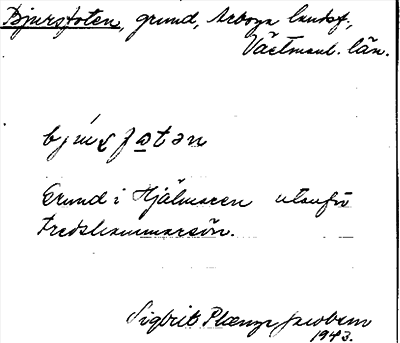 Bjursfoten, grund, Arboga landsf.,
Västmanl. län.
bjúʂfo̲tən
Grund i Hjälmaren utanför
Fredshammarsön.
Sigbrit Plænge Jacobson
1943.